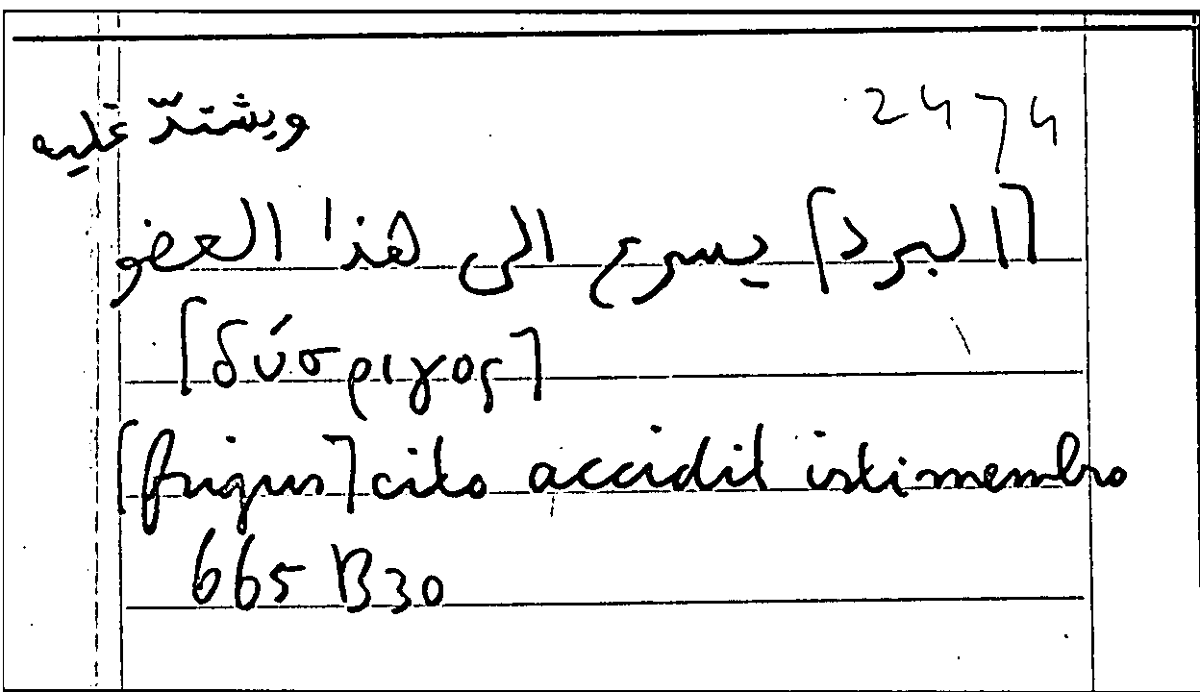 2474
ويشتدّ عليه
[البرد] يسرع الى هذا العضو
[δύσριγος]
[frigus] cito accidit isti membro
665 B30